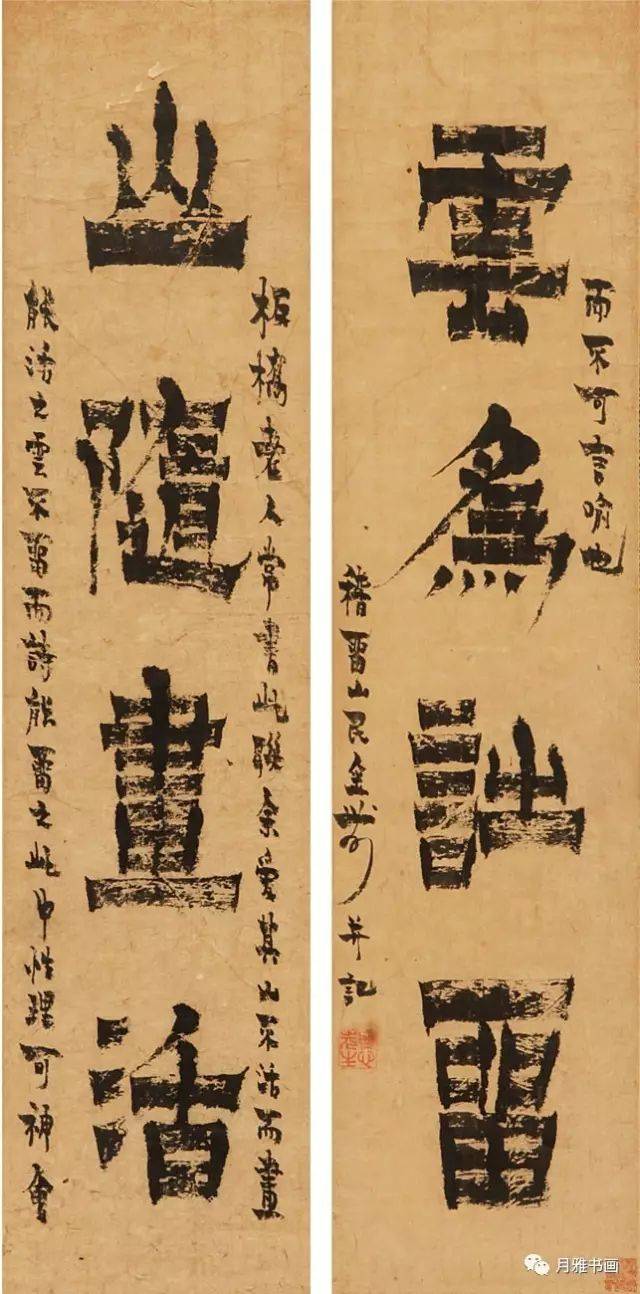 雲為詩留
山隨畫活
板橋老人常書此聯余愛其山不活而畫
能活之雲不留而詩能留之此中性理可神會
而不可言喻也
稽留山民金農并記
月雅书画